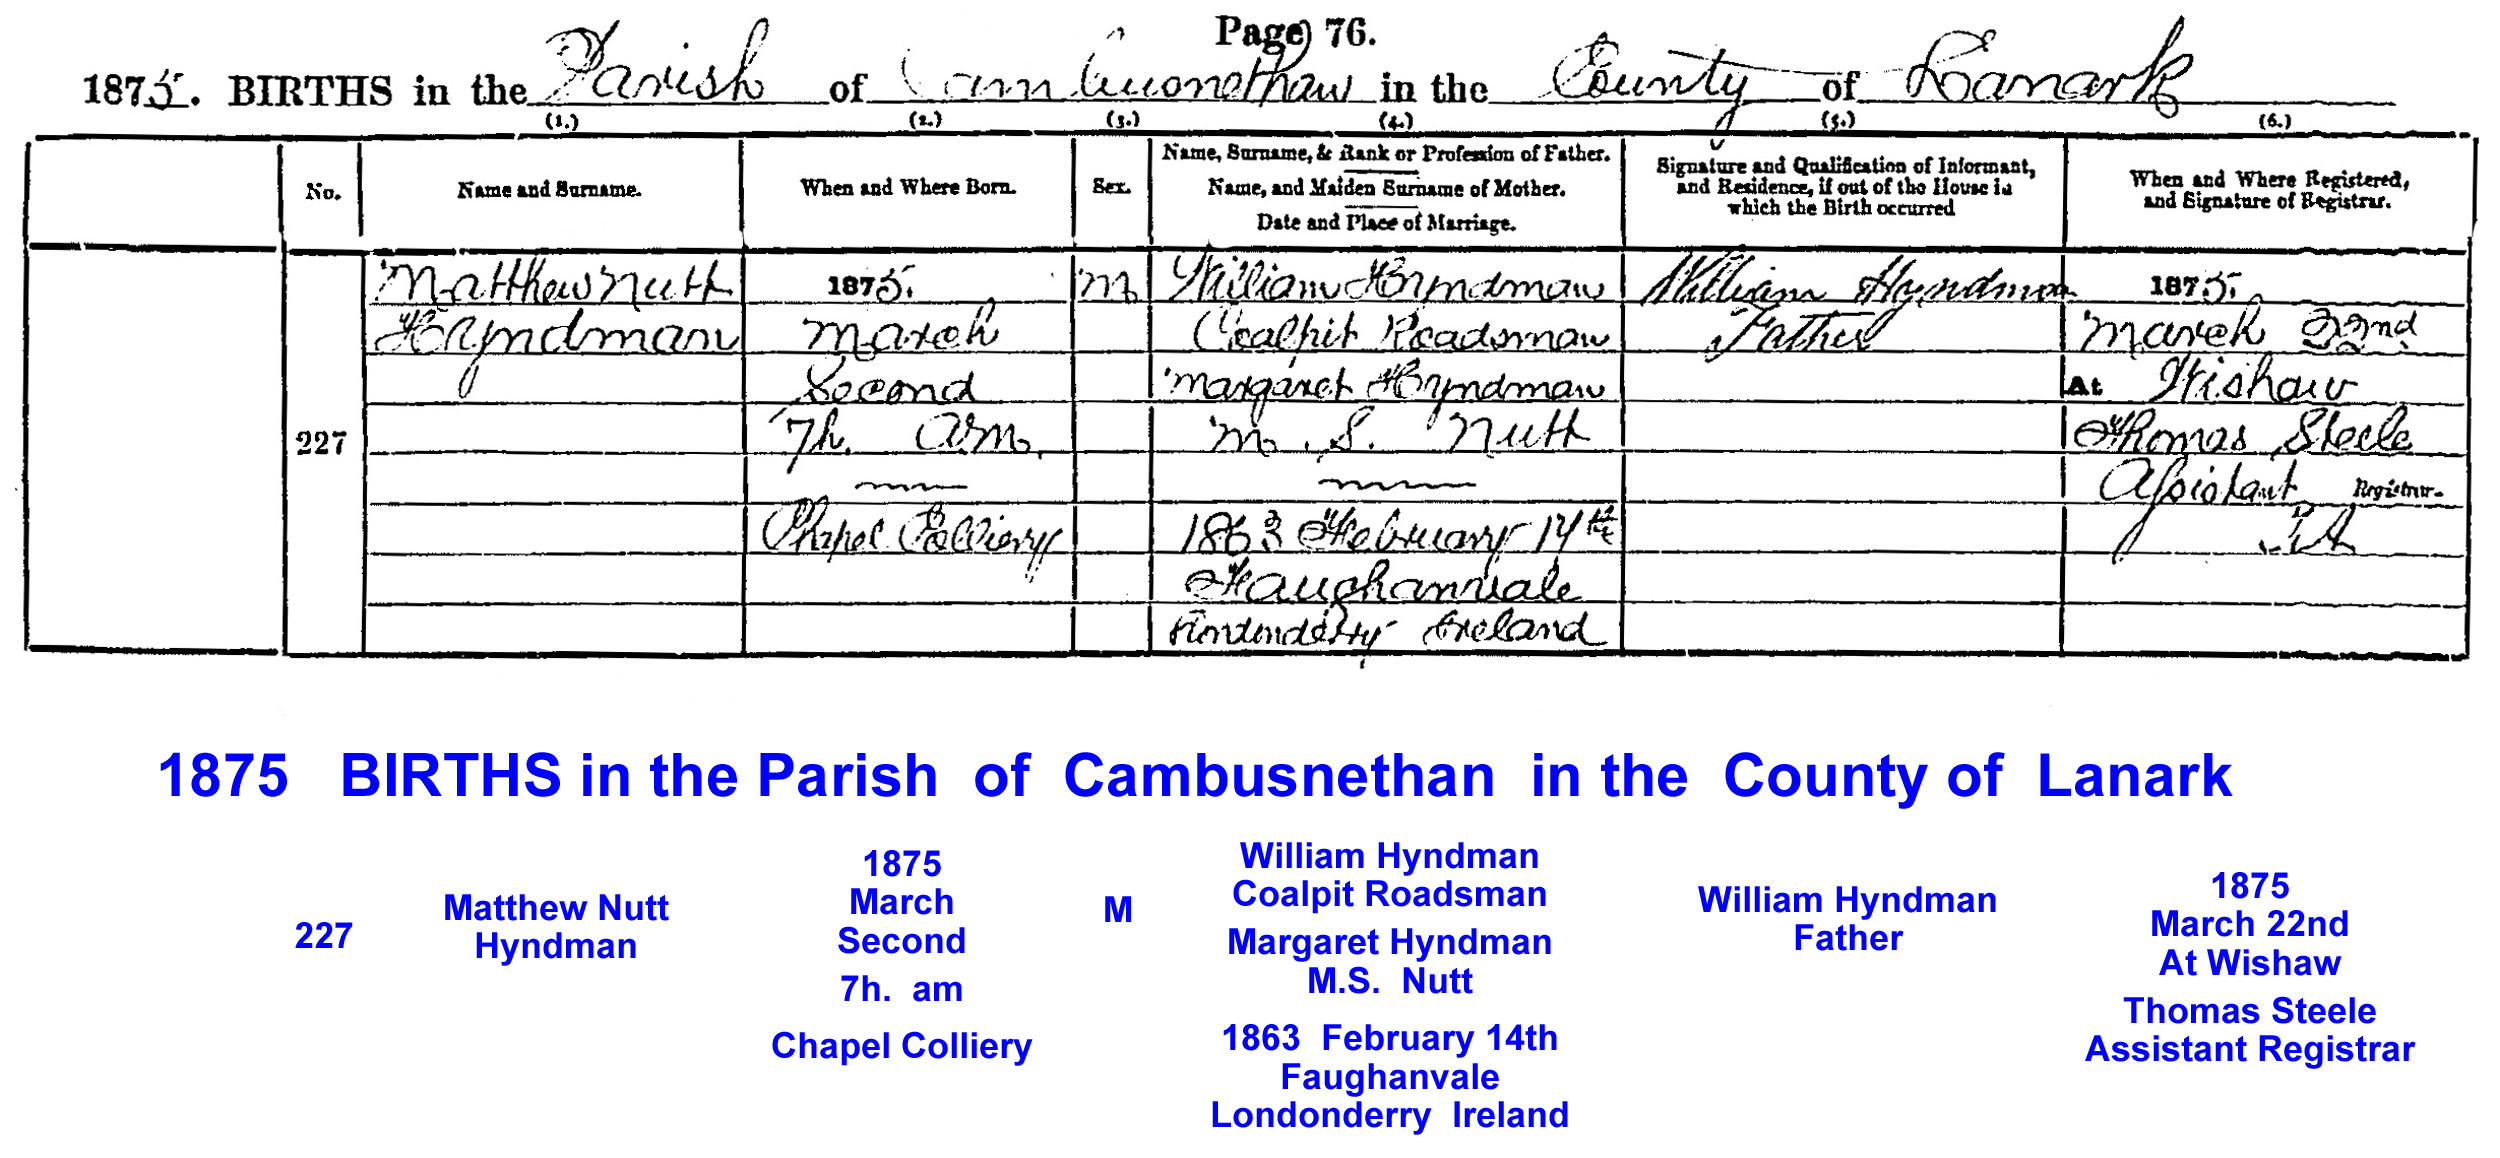 Page 76.
1875. BIRTHS in the Parish of Cambusnethan in the County of Lanark
(1.) (2.) (3.) (4.) (5.) (6.)
No.
Name and Surname.
When and Where Born.
Sex.
Name, Surname, & Rank or Profession of Father.
Name, and Maiden Surname of Mother.
Date and Place of Marriage.
Signature and Qualification of Informant,
and Residence, if out of the House in
which the Birth occurred
When and Where Registered,
and Signature of Registrar.
227
Matthew Nutt
Hyndman
1875.
March
Second
7h. am.
Chapel Colliery
M
William Hyndman
Coalpit Roadsman
Margaret Hyndman
m.S. Nutt
1863 February 14th
Faughanvale
Londonderry Ireland
William Hyndman
Father
1875.
March 22nd
At Wishaw
Thomas Steele
Assistant Registrar.
1875 BIRTHS in the Parish of Cambusnethan in the County of Lanark
227
Matthew Nutt
Hyndman
1875
March
Second
7h. am
Chapel Colliery
M
William Hyndman
Coalpit Roadsman
Margaret Hyndman
M.S. Nutt
1863 February 14th
Faughanvale
Londonderry Ireland
William Hyndman
Father
1875
March 22nd
At Wishaw
Thomas Steele
Assistant Registrar